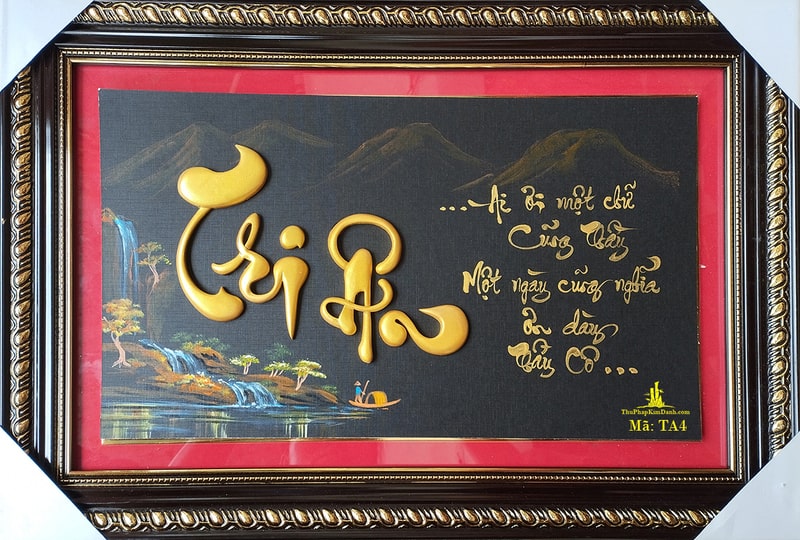 Tri Ân
...Ai ơi một chữ
Cũng Thầy
Một ngày cũng nghĩa
Ơn dày
Thầy Cô...
ThuPhapKimDanh.com
Mã: TA4